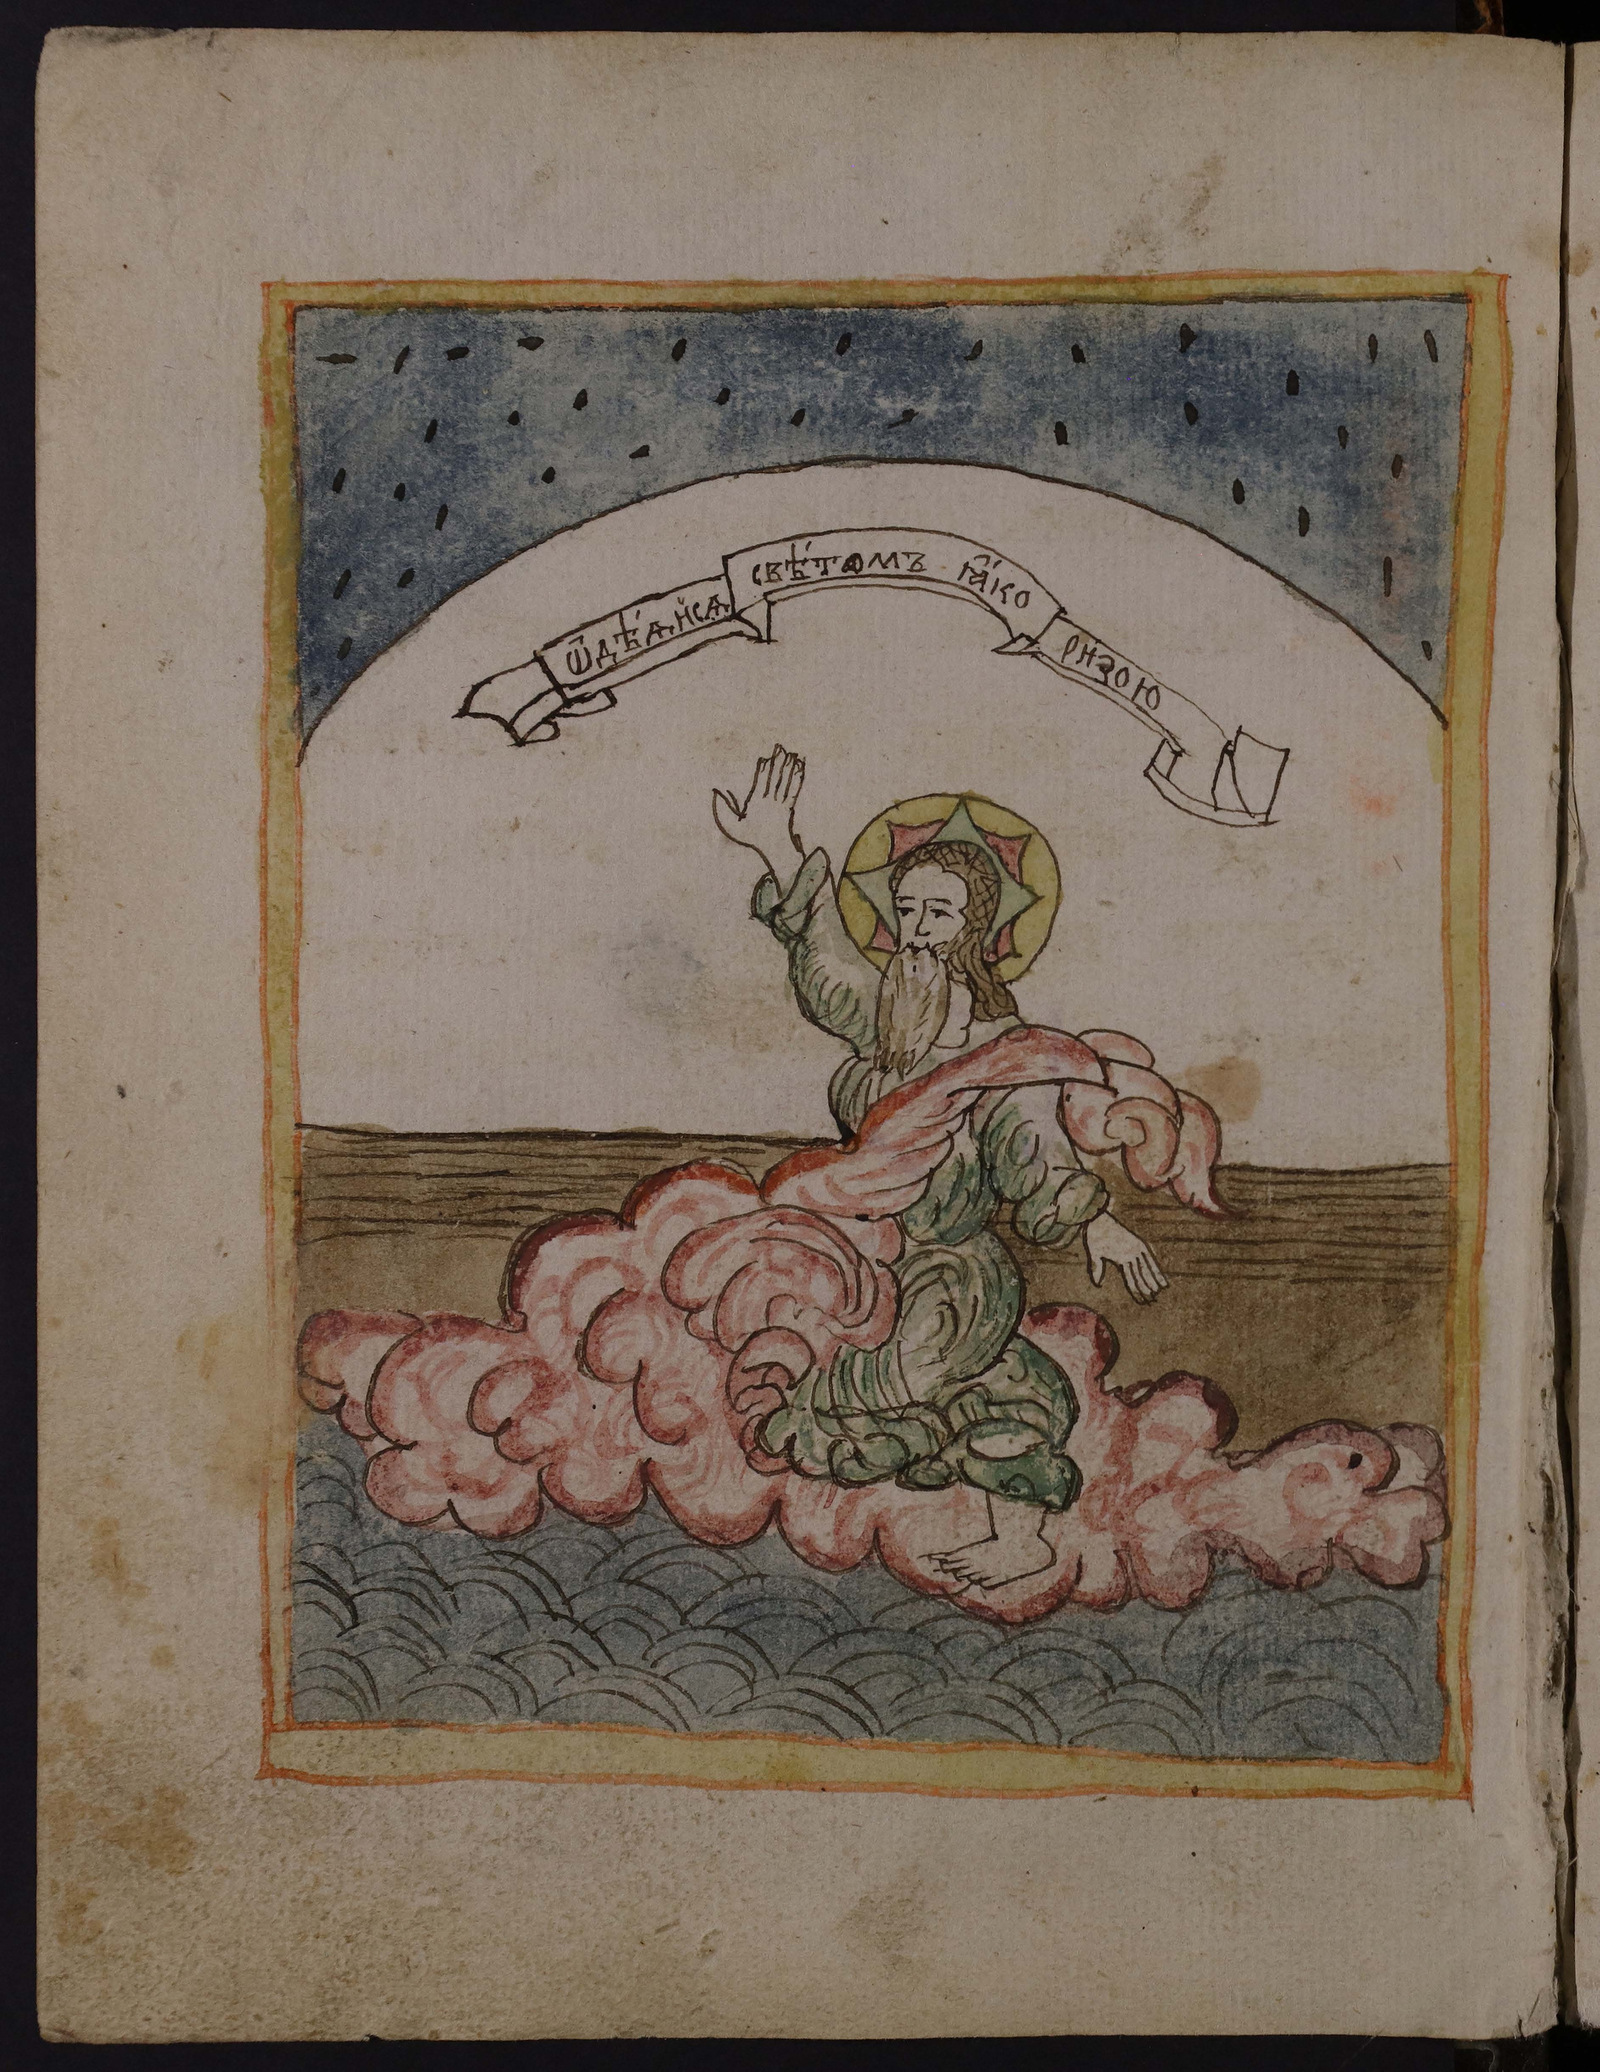 ѿдѣ́ѧйсѧ свѣ́томъ ꙗ҆́кѡ ри́зою